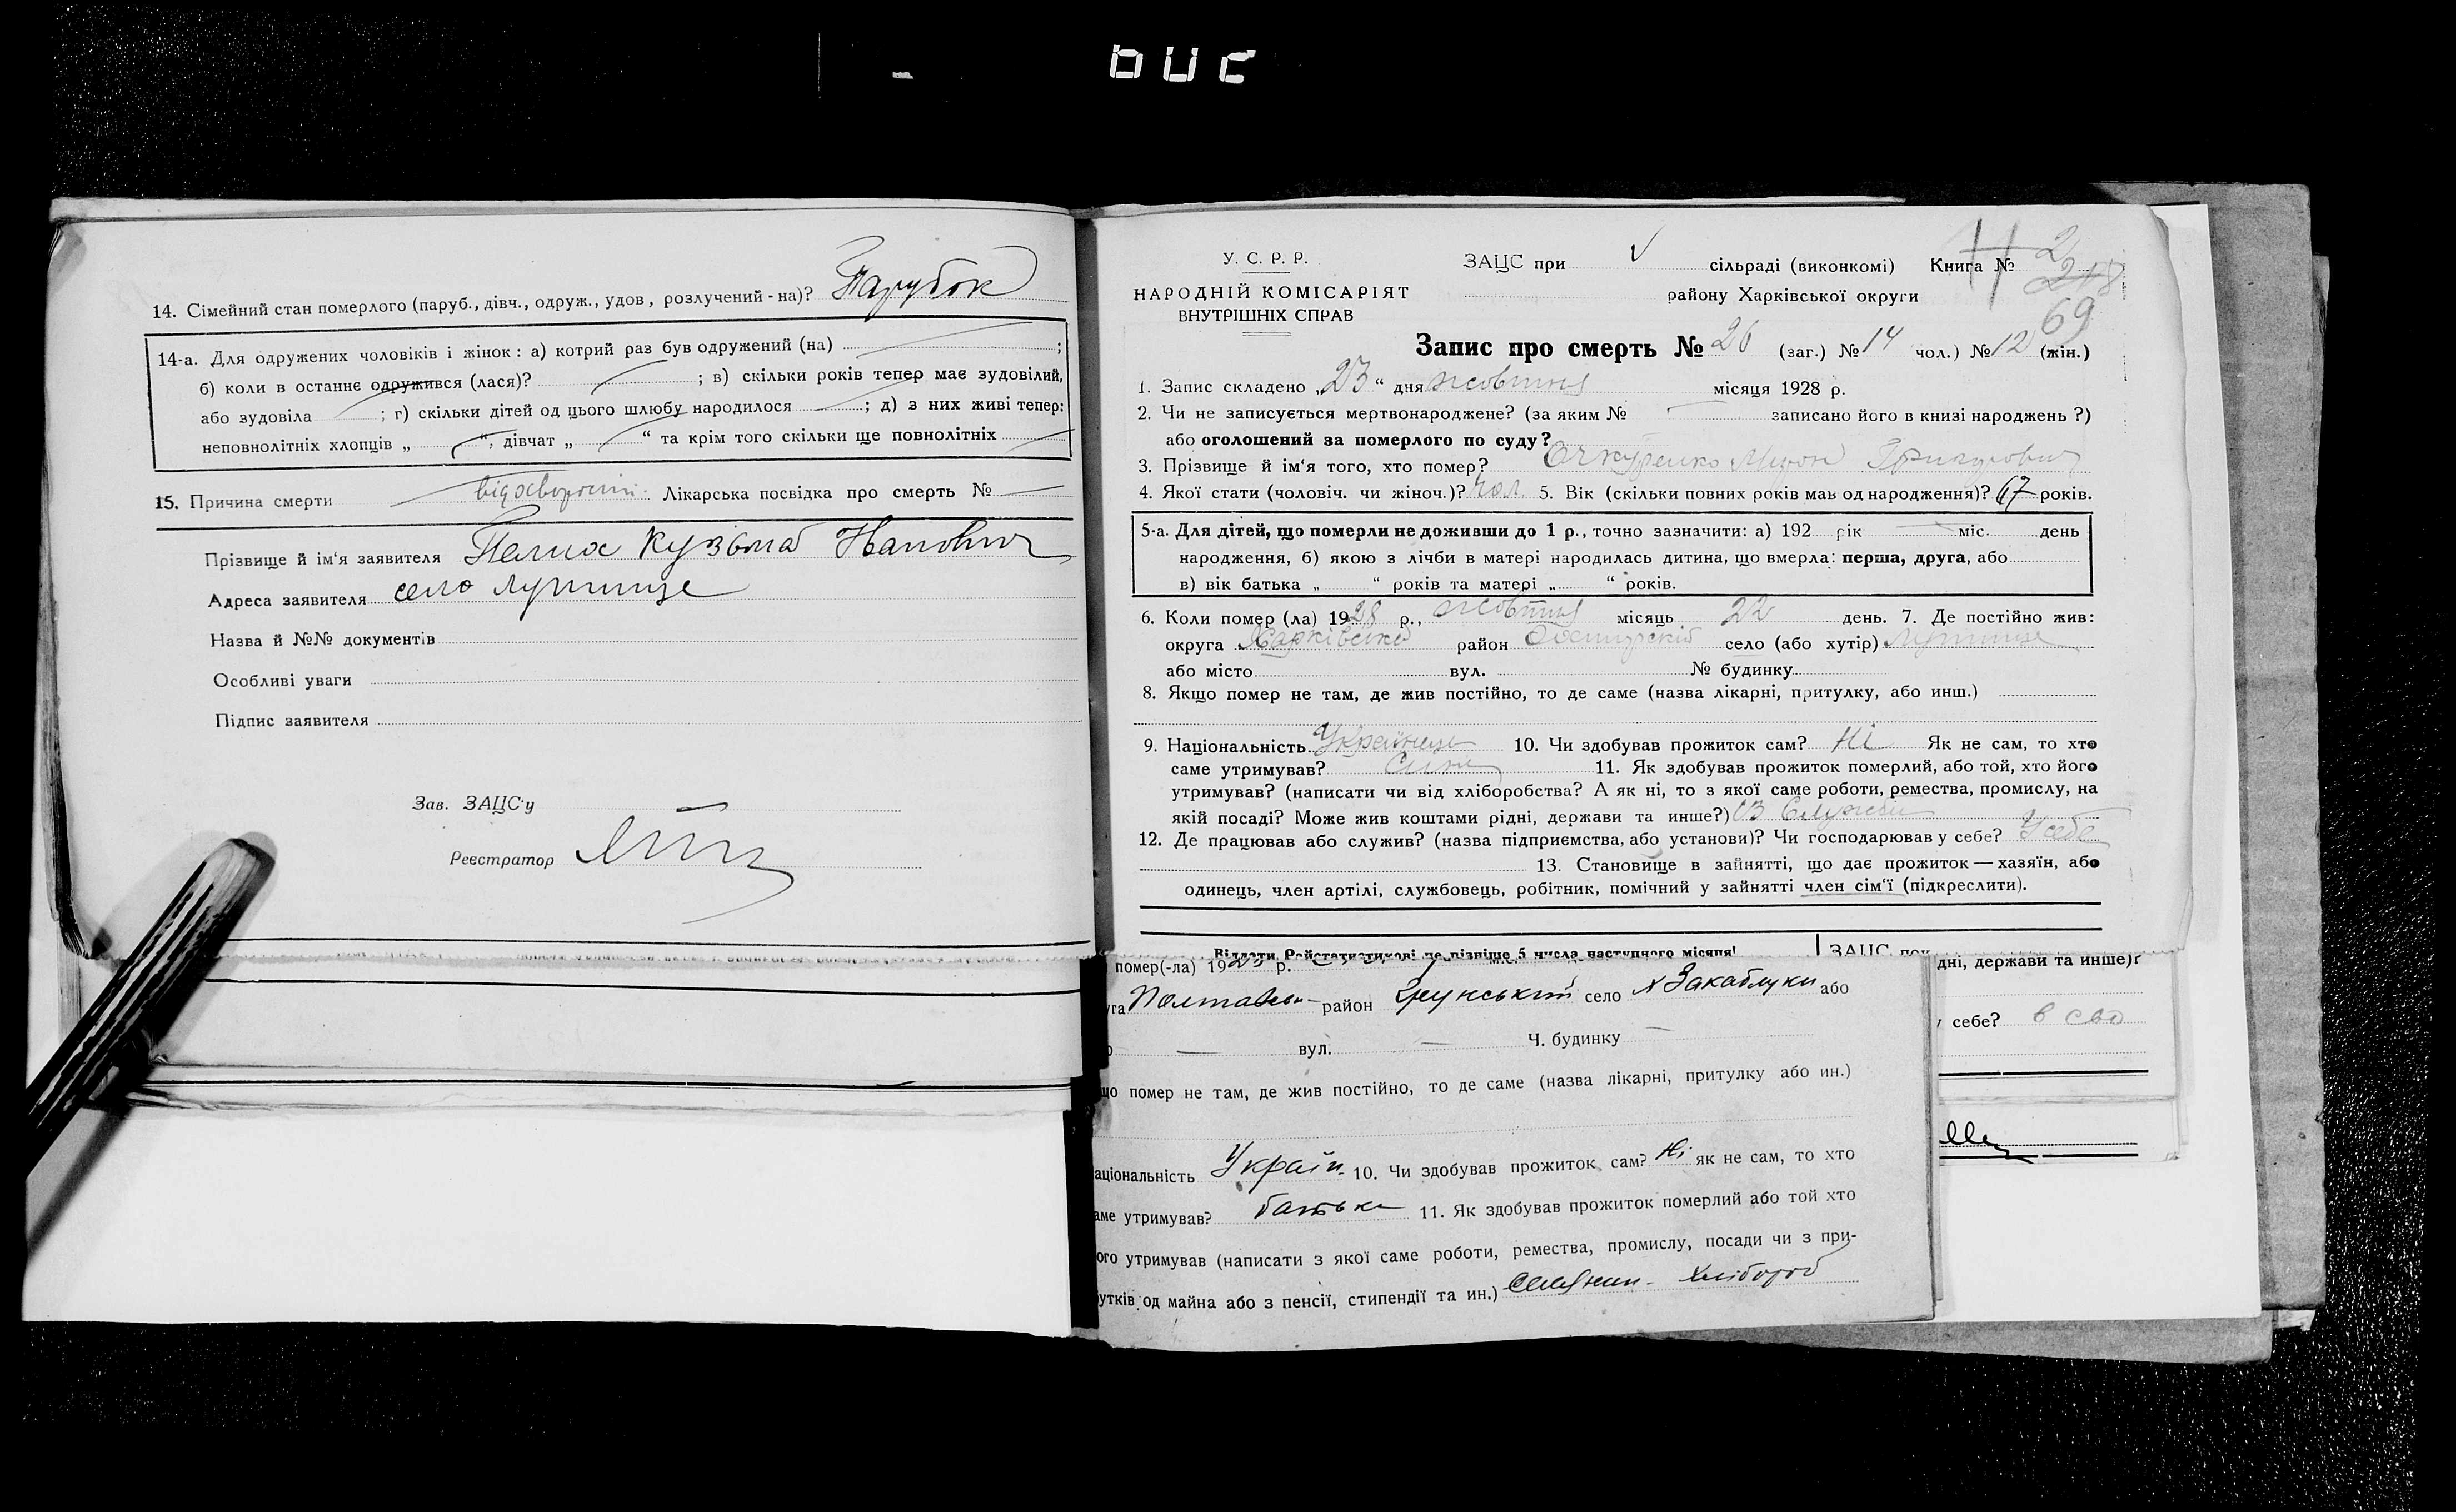 14. Сімейний стан померлого (паруб., дівч., одруж., удов, розлучений-на)? Парубок
14-а. Для одружених чоловіків і жінок: а) котрий раз був одружений (на) ;
б) коли в останнє одружився (лася)? ; в) скільки років тепер має зудовілий,
або зудовіла ; г) скільки дітей од цього шлюбу народилося ; д) з них живі тепер:
неповнолітніх хлопців „ “, дівчат „ “ та крім того скільки ще повнолітніх
15. Причина смерти Лікарська посвідка про смерть №
Прізвище й ім‘я заявителя Кузьма
Адреса заявителя село Лутище
Назва й №№ документів
Особливі уваги
Підпис заявителя
Зав. ЗАЦС‘у
Реєстратор
У. С. Р. Р.
НАРОДНІЙ КОМІСАРІЯТ
ВНУТРІШНІХ СПРАВ
ЗАЦС при сільраді (виконкомі) Книга № 2
району Харківської округи
69
Запис про смерть № 26 (заг.) № 14 чол.) № 12 (жін.)
1. Запис складено „23“ дня жовтня місяця 1928 р.
2. Чи не записується мертвонароджене? (за яким № записано його в книзі народжень ?)
або оголошений за померлого по суду?
3. Прізвище й ім‘я того, хто помер?
4. Якої стати (чоловіч. чи жіноч.)? Чол. 5. Вік (скільки повних років мав од народження)? 67 років.
5-а. Для дітей, що померли не доживши до 1 р., точно зазначити: а) 192 рік міс. день
народження, б) якою з лічби в матері народилась дитина, що вмерла: перша, друга, або
в) вік батька „ “ років та матері „ “ років.
6. Коли помер (ла) 1928 р., жовтня місяць 22 день. 7. Де постійно жив:
округа Харківська район село (або хутір) Лутище
або місто вул. № будинку
8. Якщо помер не там, де жив постійно, то де саме (назва лікарні, притулку, або инш.)
9. Національність Українець 10. Чи здобував прожиток сам? Ні Як не сам, то хто
саме утримував? Сини 11. Як здобував прожиток померлий, або той, хто його
утримував? (написати чи від хліборобства? А як ні, то з якої саме роботи, ремества, промислу, на
якій посаді? Може жив коштами рідні, держави та инше?) Із Служби
12. Де працював або служив? (назва підприємства, або установи)? Чи господарював у себе? У себе
13. Становище в зайнятті, що дає прожиток — хазяїн, або
одинець, член артілі, службовець, робітник, помічний у зайнятті член сім‘ї (підкреслити).
Віддати Райстатистикові не пізніше 5 числа наступного місяця!
ЗАЦС при
помер(-ла) 192 р.
район село Закаблуки або
вул. Ч. будинку
що помер не там, де жив постійно, то де саме (назва лікарні, притулку або ин.)
аціональність Україн. 10. Чи здобував прожиток сам? Ні як не сам, то хто
аме утримував? батьки 11. Як здобував прожиток померлий або той хто
ого утримував (написати з якої саме роботи, ремества, промислу, посади чи з при-
утків од майна або з пенсії, стипендії та ин.) Селянин - хлібороб
дні, держави та инше)?
у себе? в сво